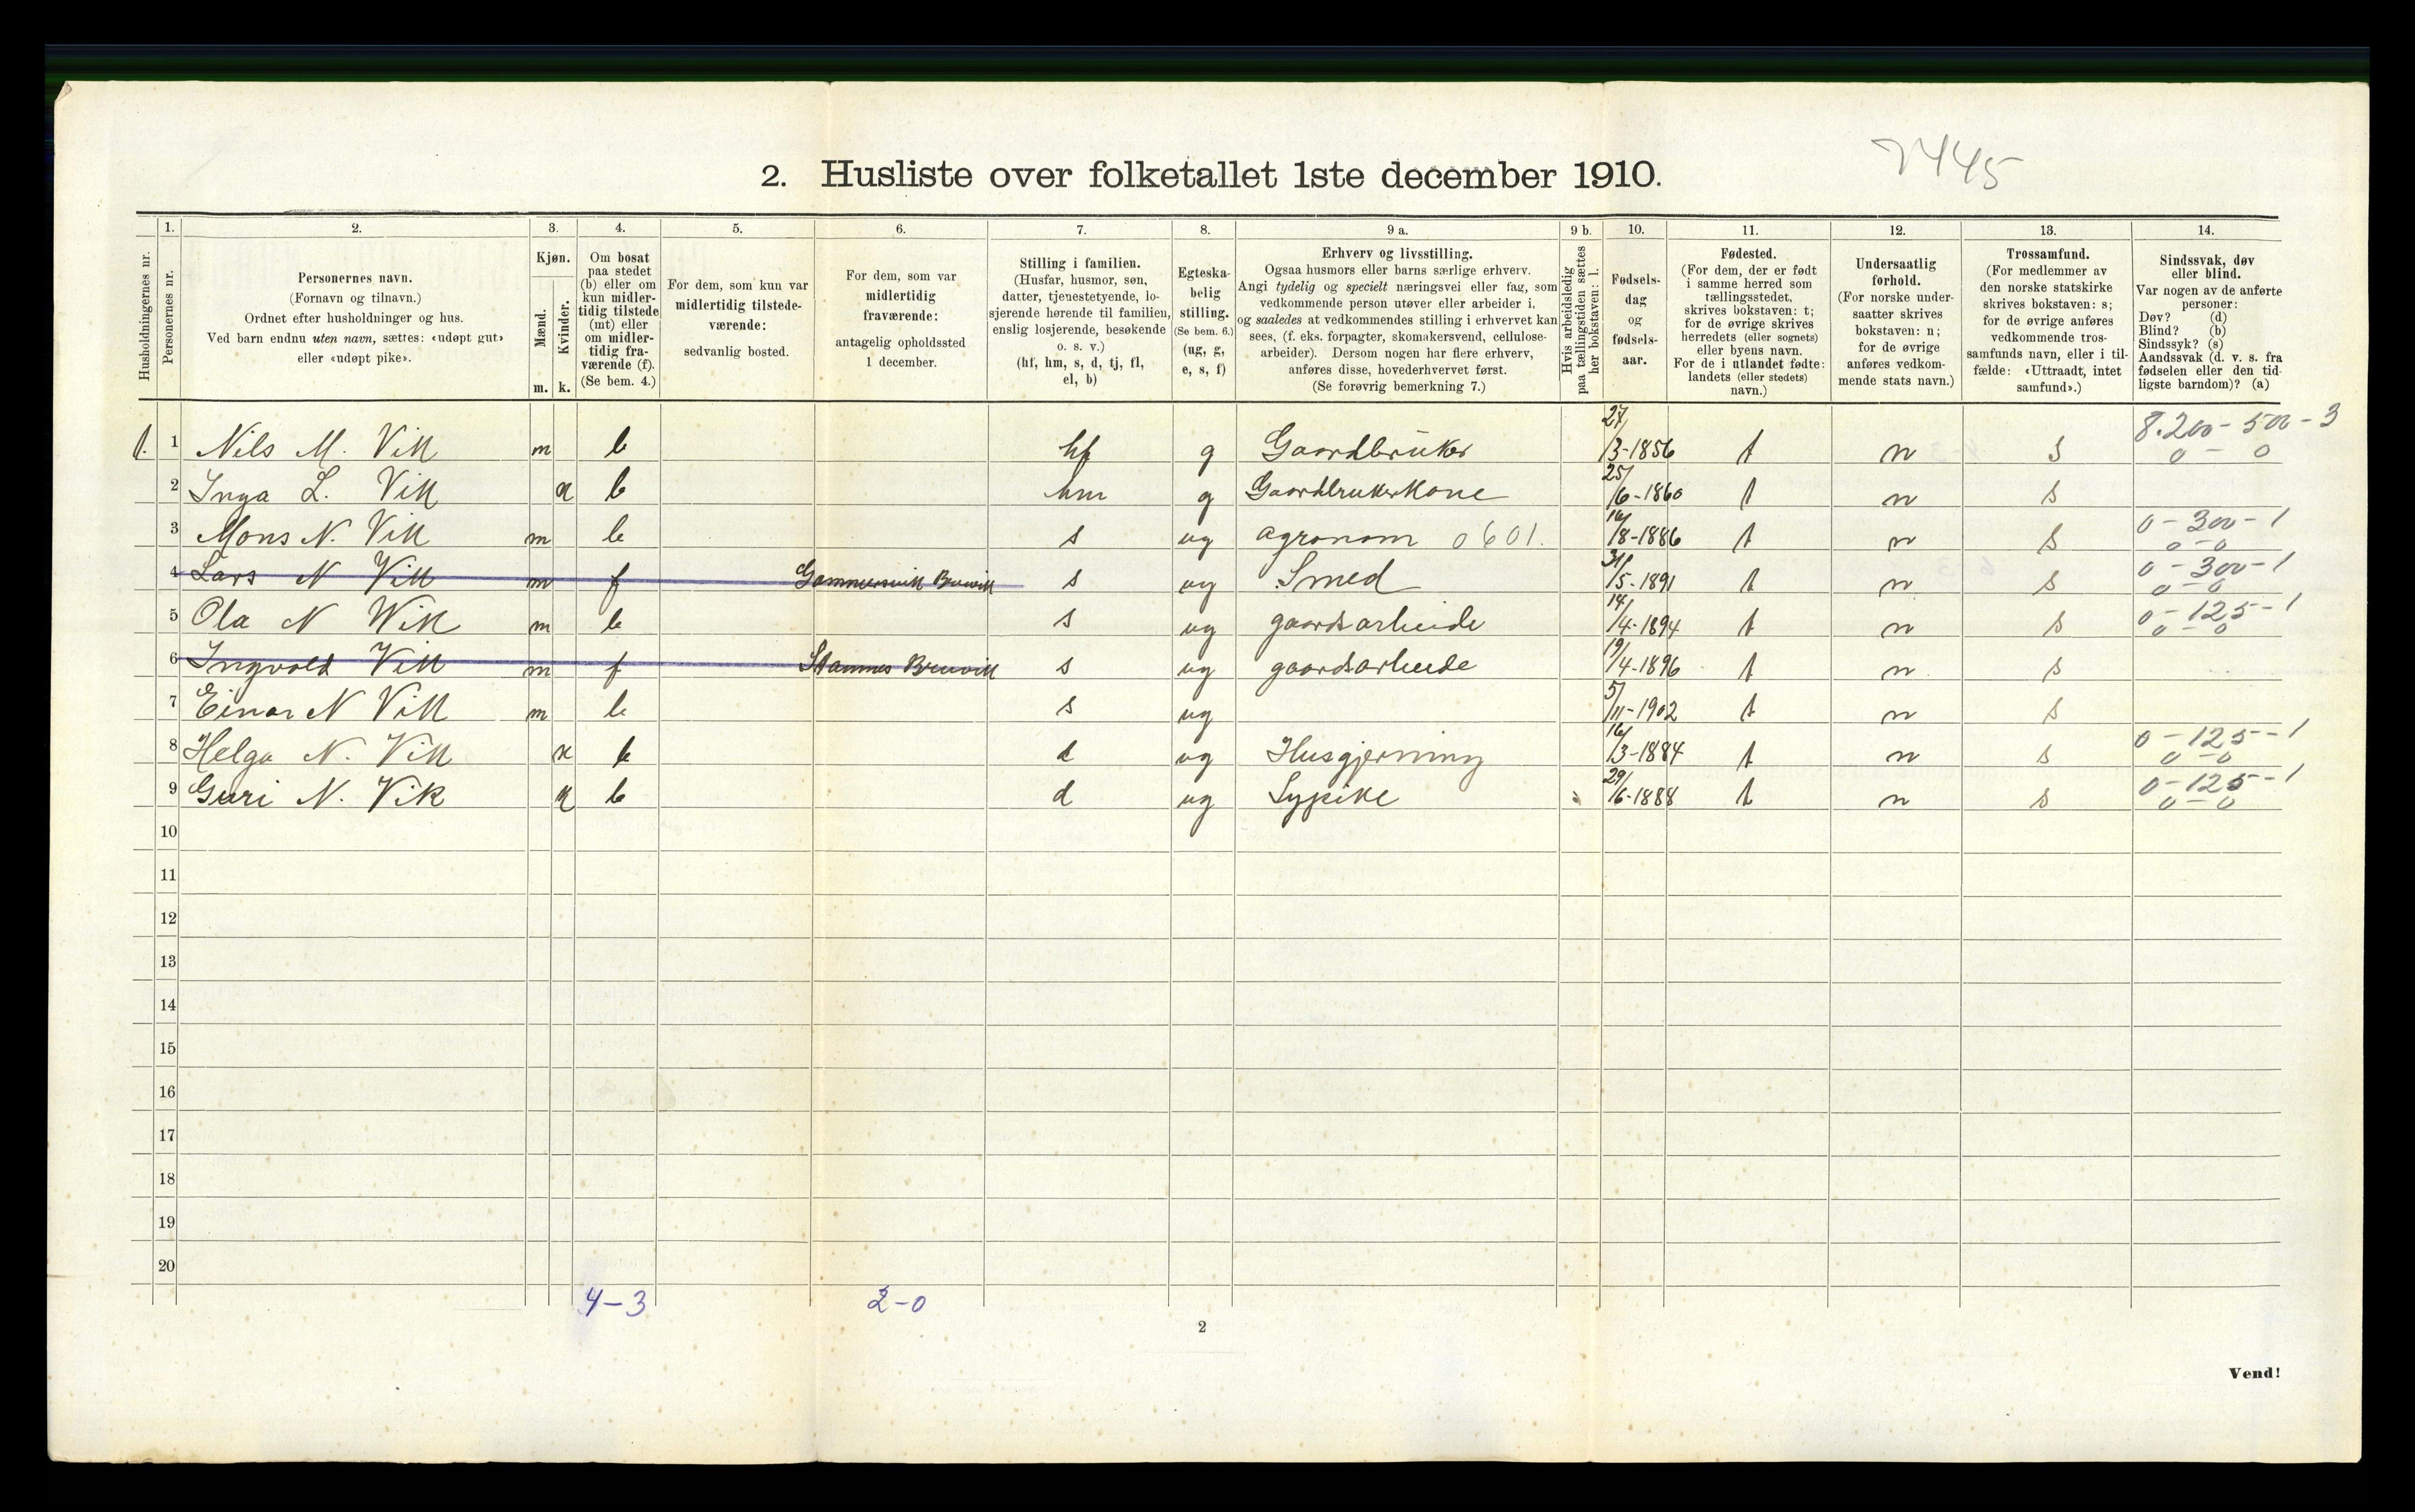 7445
2. Husliste over folketallet 1ste december 1910.
Husholdningernes nr.
1. Personernes nr.
2. Personernes navn. (Fornavn og tilnavn.) Ordnet efter husholdninger og hus. Ved barn endnu uten navn, sættes: «udøpt gut» eller «udøpt pike».
3. Kjøn. Mænd. m. Kvinder. k.
4. Om bosat paa stedet (b) eller om kun midlertidig tilstede (mt) eller om midlertidig fraværende (f). (Se bem. 4.)
5. For dem, som kun var midlertidig tilstedeværende: sedvanlig bosted.
6. For dem, som var midlertidig fraværende: antagelig opholdssted 1 december.
7. Stilling i familien. (Husfar, husmor, søn, datter, tjenestetyende, losjerende hørende til familien, enslig losjerende, besøkende o. s. v.) (hf, hm, s, d, tj, fl, el, b)
8. Egteskabelig stilling. (Se bem. 6.) (ug, g, e, s, f)
9 a. Erhverv og livsstilling. Ogsaa husmors eller barns særlige erhverv. Angi tydelig og specielt næringsvei eller fag, som vedkommende person utøver eller arbeider i, og saaledes at vedkommendes stilling i erhvervet kan sees, (f. eks. forpagter, skomakersvend, cellulosearbeider). Dersom nogen har flere erhverv, anføres disse, hovederhvervet først. (Se forøvrig bemerkning 7.)
9 b. Hvis arbeidsledig paa tællingstiden sættes her bokstaven: l.
10. Fødselsdag og fødselsaar.
11. Fødested. (For dem, der er født i samme herred som tællingsstedet, skrives bokstaven: t; for de øvrige skrives herredets (eller sognets) eller byens navn. For de i utlandet fødte: landets (eller stedets) navn.)
12. Undersaatlig forhold. (For norske undersaatter skrives bokstaven: n; for de øvrige anføres vedkommende stats navn.)
13. Trossamfund. (For medlemmer av den norske statskirke skrives bokstaven: s; for de øvrige anføres vedkommende trossamfunds navn, eller i tilfælde: «Uttraadt, intet samfund».)
14. Sindssvak, døv eller blind. Var nogen av de anførte personer: Døv? (d) Blind? (b) Sindssyk? (s) Aandssvak (d. v. s. fra fødselen eller den tidligste barndom)? (a)
1. 1 Nils M. Vik m b hf g Gaardbruker 27/3-1856 t n s 8.200-500-3 0-0
2 Inga L. Vik k b hm g Gaardbrukerkone 25/6-1860 t n s
3 Mons N. Vik m b s ug agronom 0601. 16/8-1886 t n s 0-300-1 0-0
4 Lars N Vik m f Gammersvik Bruvik s ug Smed 31/5-1891 t n s 0-300-1 0-0
5 Ola N Wik m b s ug gaardsarbeide 14/4-1894 t n s 0-125-1 0-0
6 Ingvald Vik m f Stamnes Bruvik s ug gaardsarbeide 19/4-1896 t n s
7 Einar N Vik m b s ug 5/11-1902 t n s
8 Helga N. Vik k b d ug Husgjerning 16/3-1884 t n s 0-125-1 0-0
9 Guri N. Vik k b d ug Sypike 29/6-1888 t n s 0-125-1 0-0
10
11
12
13
14
15
16
17
18
19
20
4-3 2-0
2
Vend!